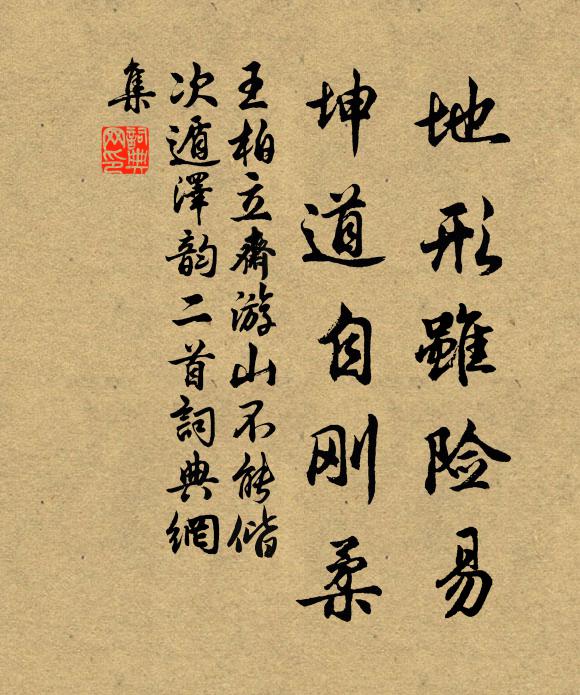 地形雖险易
坤道自刚柔
王柏立齋游山不能偕
次遁澤韵二首詞典網
集
詞典
网印